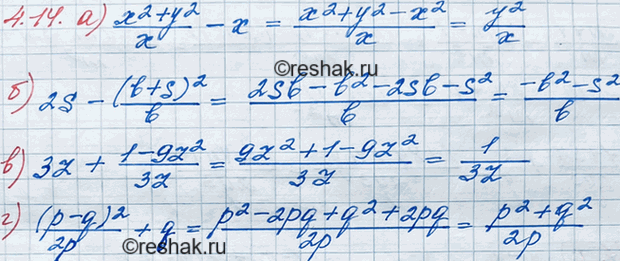 4.14. а) (x²+y²)/x - x = (x²+y²-x²)/x = y²/x
©reshak.ru
б) 2s - (b+s)²/b = (2sb-b²-2sb-s²)/b = (-b²-s²)/b
в) 3z + (1-9z²)/3z = (9z²+1-9z²)/3z = 1/3z
г) (p-q)²/2p + q = (p²-2pq+q²+2pq)/2p = (p²+q²)/2p
©reshak.ru